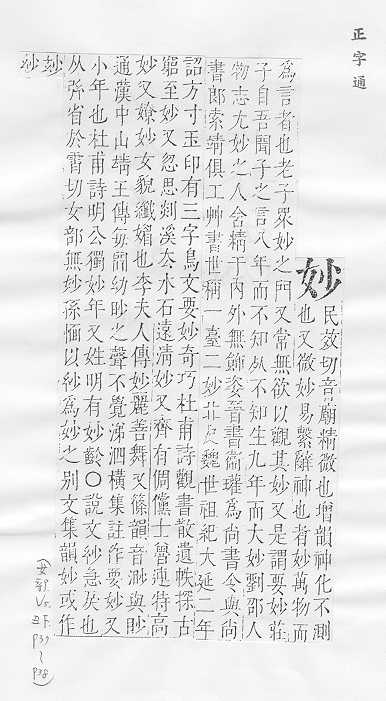 正字通
妙
民效切音廟精微也增韻神化不測
也又微妙易繫辭神也者妙萬物而
為言者也老子眾妙之門又常無欲以觀其妙又是謂要妙莊
子自吾聞子之言八年而不知死不知生九年而大妙劉邵人
物志尤妙之人含精于內外無飾姿晉書衞瓘為尚書令與尚
書郎索靖俱工艸書世稱一臺二妙北史魏世祖紀大延二年
詔方寸玉印有三字鳥文要妙奇巧杜甫詩觀書散遺帙探古
窮至妙又忽思剡溪去水石遠淸妙又齊有倜儻士魯連特高
妙又嫽妙女貌纖媚也李夫人傳妙麗善舞又篠韻音渺與眇
通漢中山靖王傳每聞幼眇之聲不覺涕泗橫集註作要妙又
小年也杜甫詩明公獨妙年又姓明有妙齡○說文玅急戾也
从弦省於霄切女部無妙孫愐以玅為妙之別文集韻妙或作
玅
(女部 丑下 p37~p38)